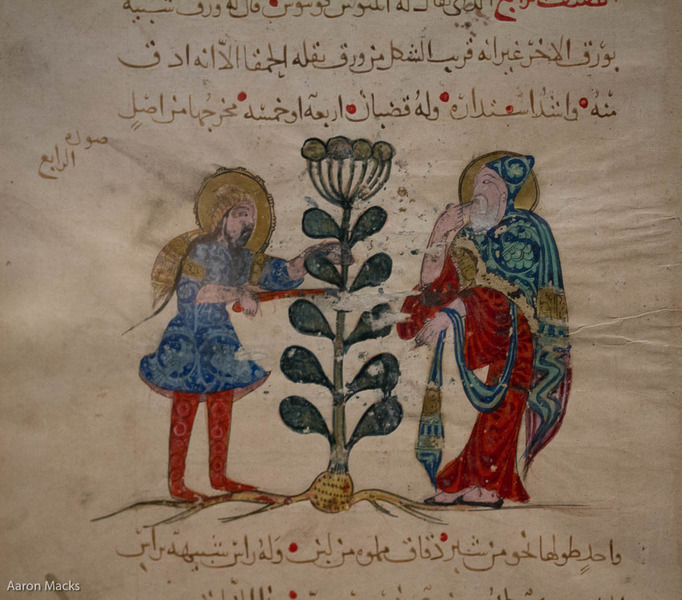 الصنف الرابع الذي يقال له المينوس قوسوس قال له ورق شبيه
بورق الاخر غير انه قريب الشكل من ورق بقله الحمقا الا انه ادق
منه واشد استداره وله قضبان اربعه او خمسه مخرجها من اصل
صوره
الرابع
واحد طولها نحو من شبر دقاق مملوه من لبن وله راس شبيهه براس
Aaron Macks